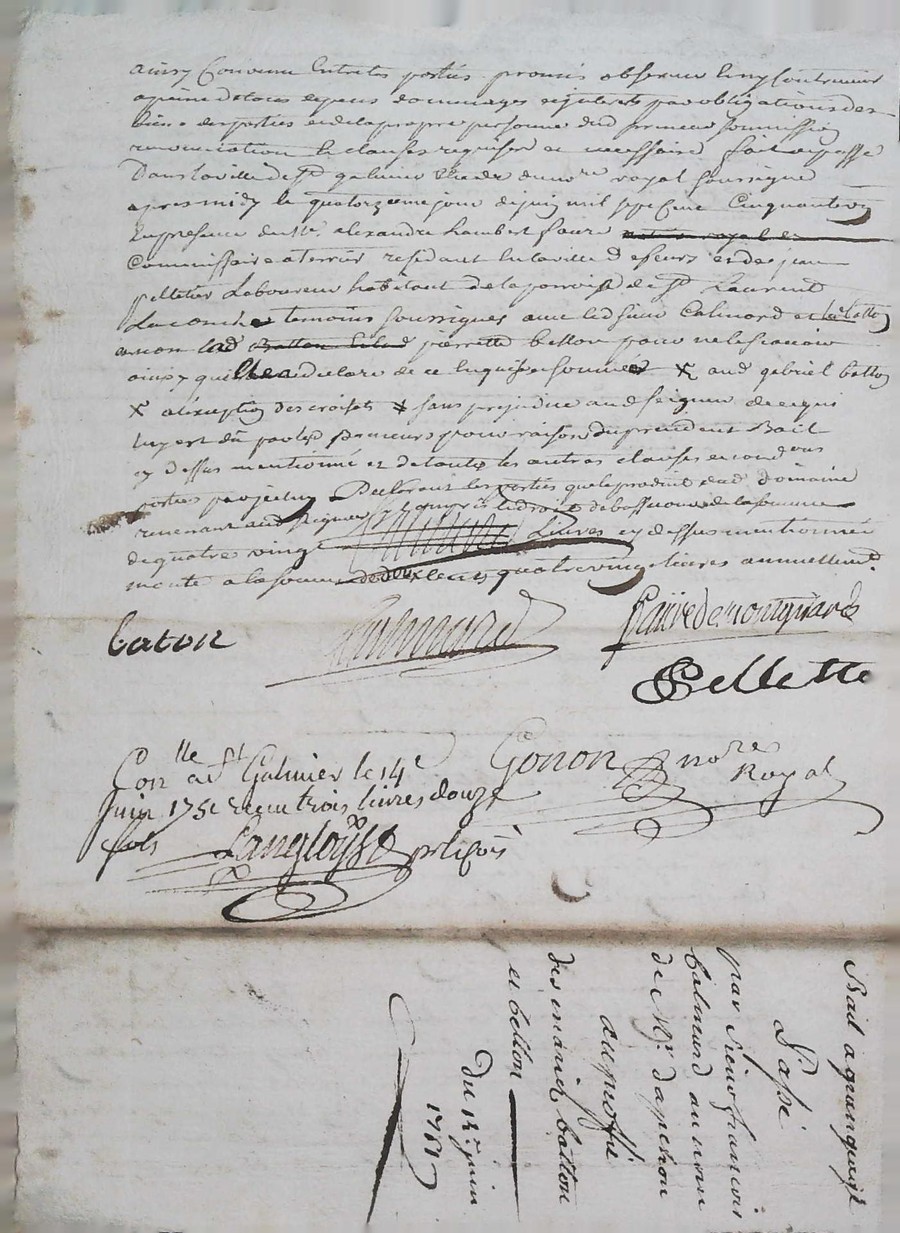 ainsy Convenu Entre les parties promis observer Sny Contrevenir
apeine de tous depens dommages interests par obligations des
biens des parties et de la propre personne dud preneur soumission
renonciation et clauses requises et necessaires fait et passé
Dans la ville de St galmier Etude du nore royal soussigné
apres midy le quatorzeme jour de juin mil sept Cent Cinquante
En presence de Me alexandre hambert faure
Commissaire a terrier residant En la ville de feurs et de jean
pelletier Laboureur habitant de la parroisse de St Laurent
La conche temoins soussignes avec led sieur Calmard et led batton
et non lad pierrette betton pour ne le scavoir
ainsy quelle a declaré de ce Enquise et sommée aud gabriel batton
a l'exception des croisets sans prejudice aud seigneur de ce qui
luy est dû par les preneurs pour raison du precedent Bail
cy dessus mentionné et de toutes les autres clauses
parties Declarant les parties que le produit dud domaine
revenant aud seigneur y compris le droit de la somme
de quatre vingt Livres cy dessus mentionnée
monte a la somme de deux cents quatre vingt livres annuellemt
baton Calmard faure de montgirard
Pellette
Conlle a St Galmier le 14e
Juin 175 Reçu trois livres douze
sols Langloys
Gonon nore
Royal
Bail a grangeage
Passé
par sieur francois
Calmard au nom
de Mr dapchon
au profit
des mariés batton
et betton
du 14 juin
1751